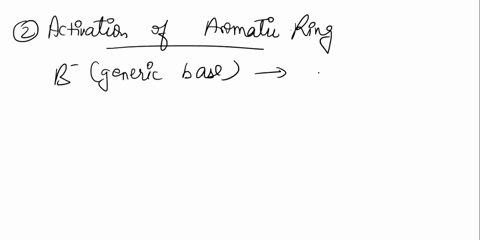 ② Activation of Aromatic Ring
B⁻ (generic base) →